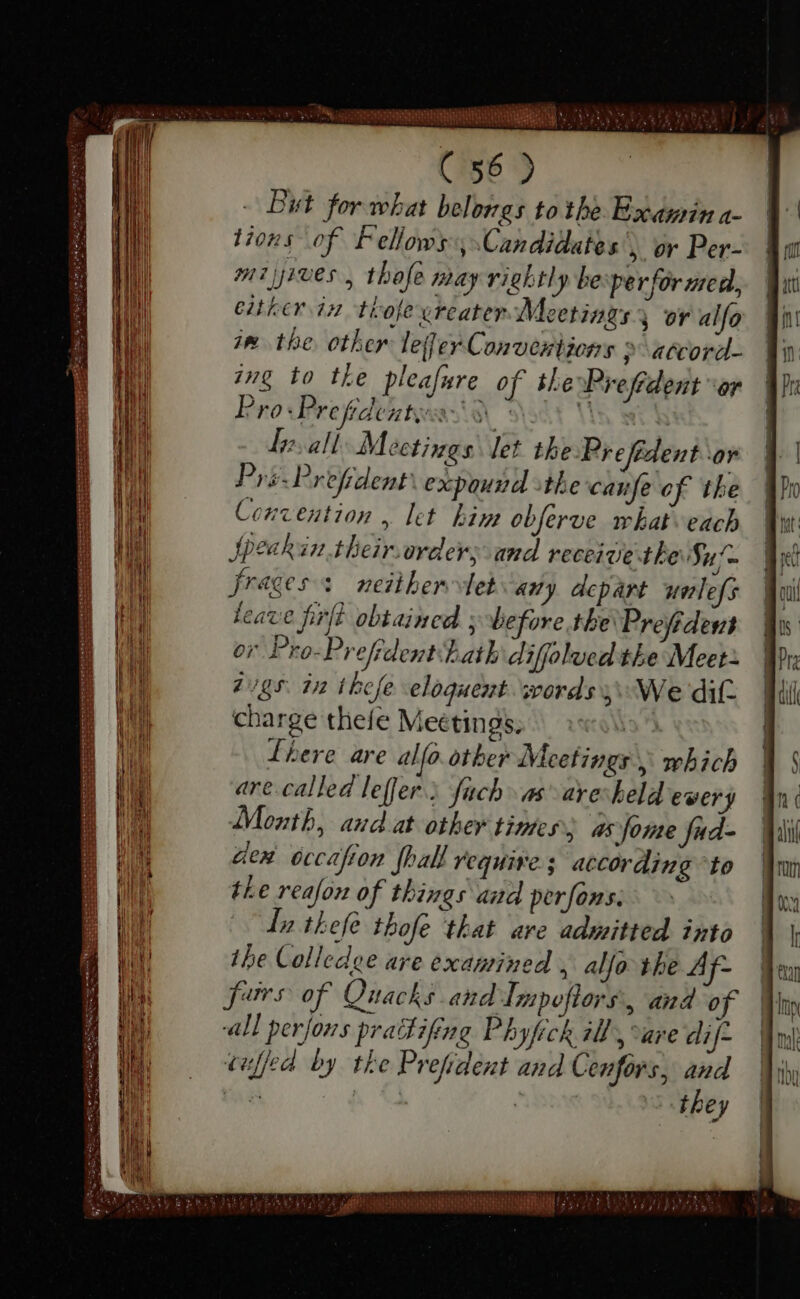 ( 56 )
But for what belongs to the Examina-
tions of Fellows, Candidates, or Per-
missives, thoſe may rightly be performed,
either in thoſe greater Meetings; or alſo
in the other leſſer Conventions; accord-
ing to the pleaſure of the Preſident or
Pro-Preſident.
In all Meetings let the Preſident or
Pro-Preſident expound the cauſe of the
Convention, let him obſerve what each
ſpeak in their order, and receive the Suf-
frages: neither let any depart unleſs
leave firſt obtained; before the Preſident
or Pro-Preſident hath diſſolved the Meet-
ings in theſe eloquent words; We diſ-
charge theſe Meetings.
There are alſo other Meetings, which
are called leſſer: ſuch as are held every
Month, and at other times, as ſome ſud-
den occaſion ſhall require; according to
the reaſon of things and perſons.
In theſe thoſe that are admitted into
the Colledge are examined, alſo the Af-
fairs of Quacks and Impoſtors, and of
all perſons practiſing Phyſick ill, are diſ-
cuſſed by the Preſident and Cenſors, and
they